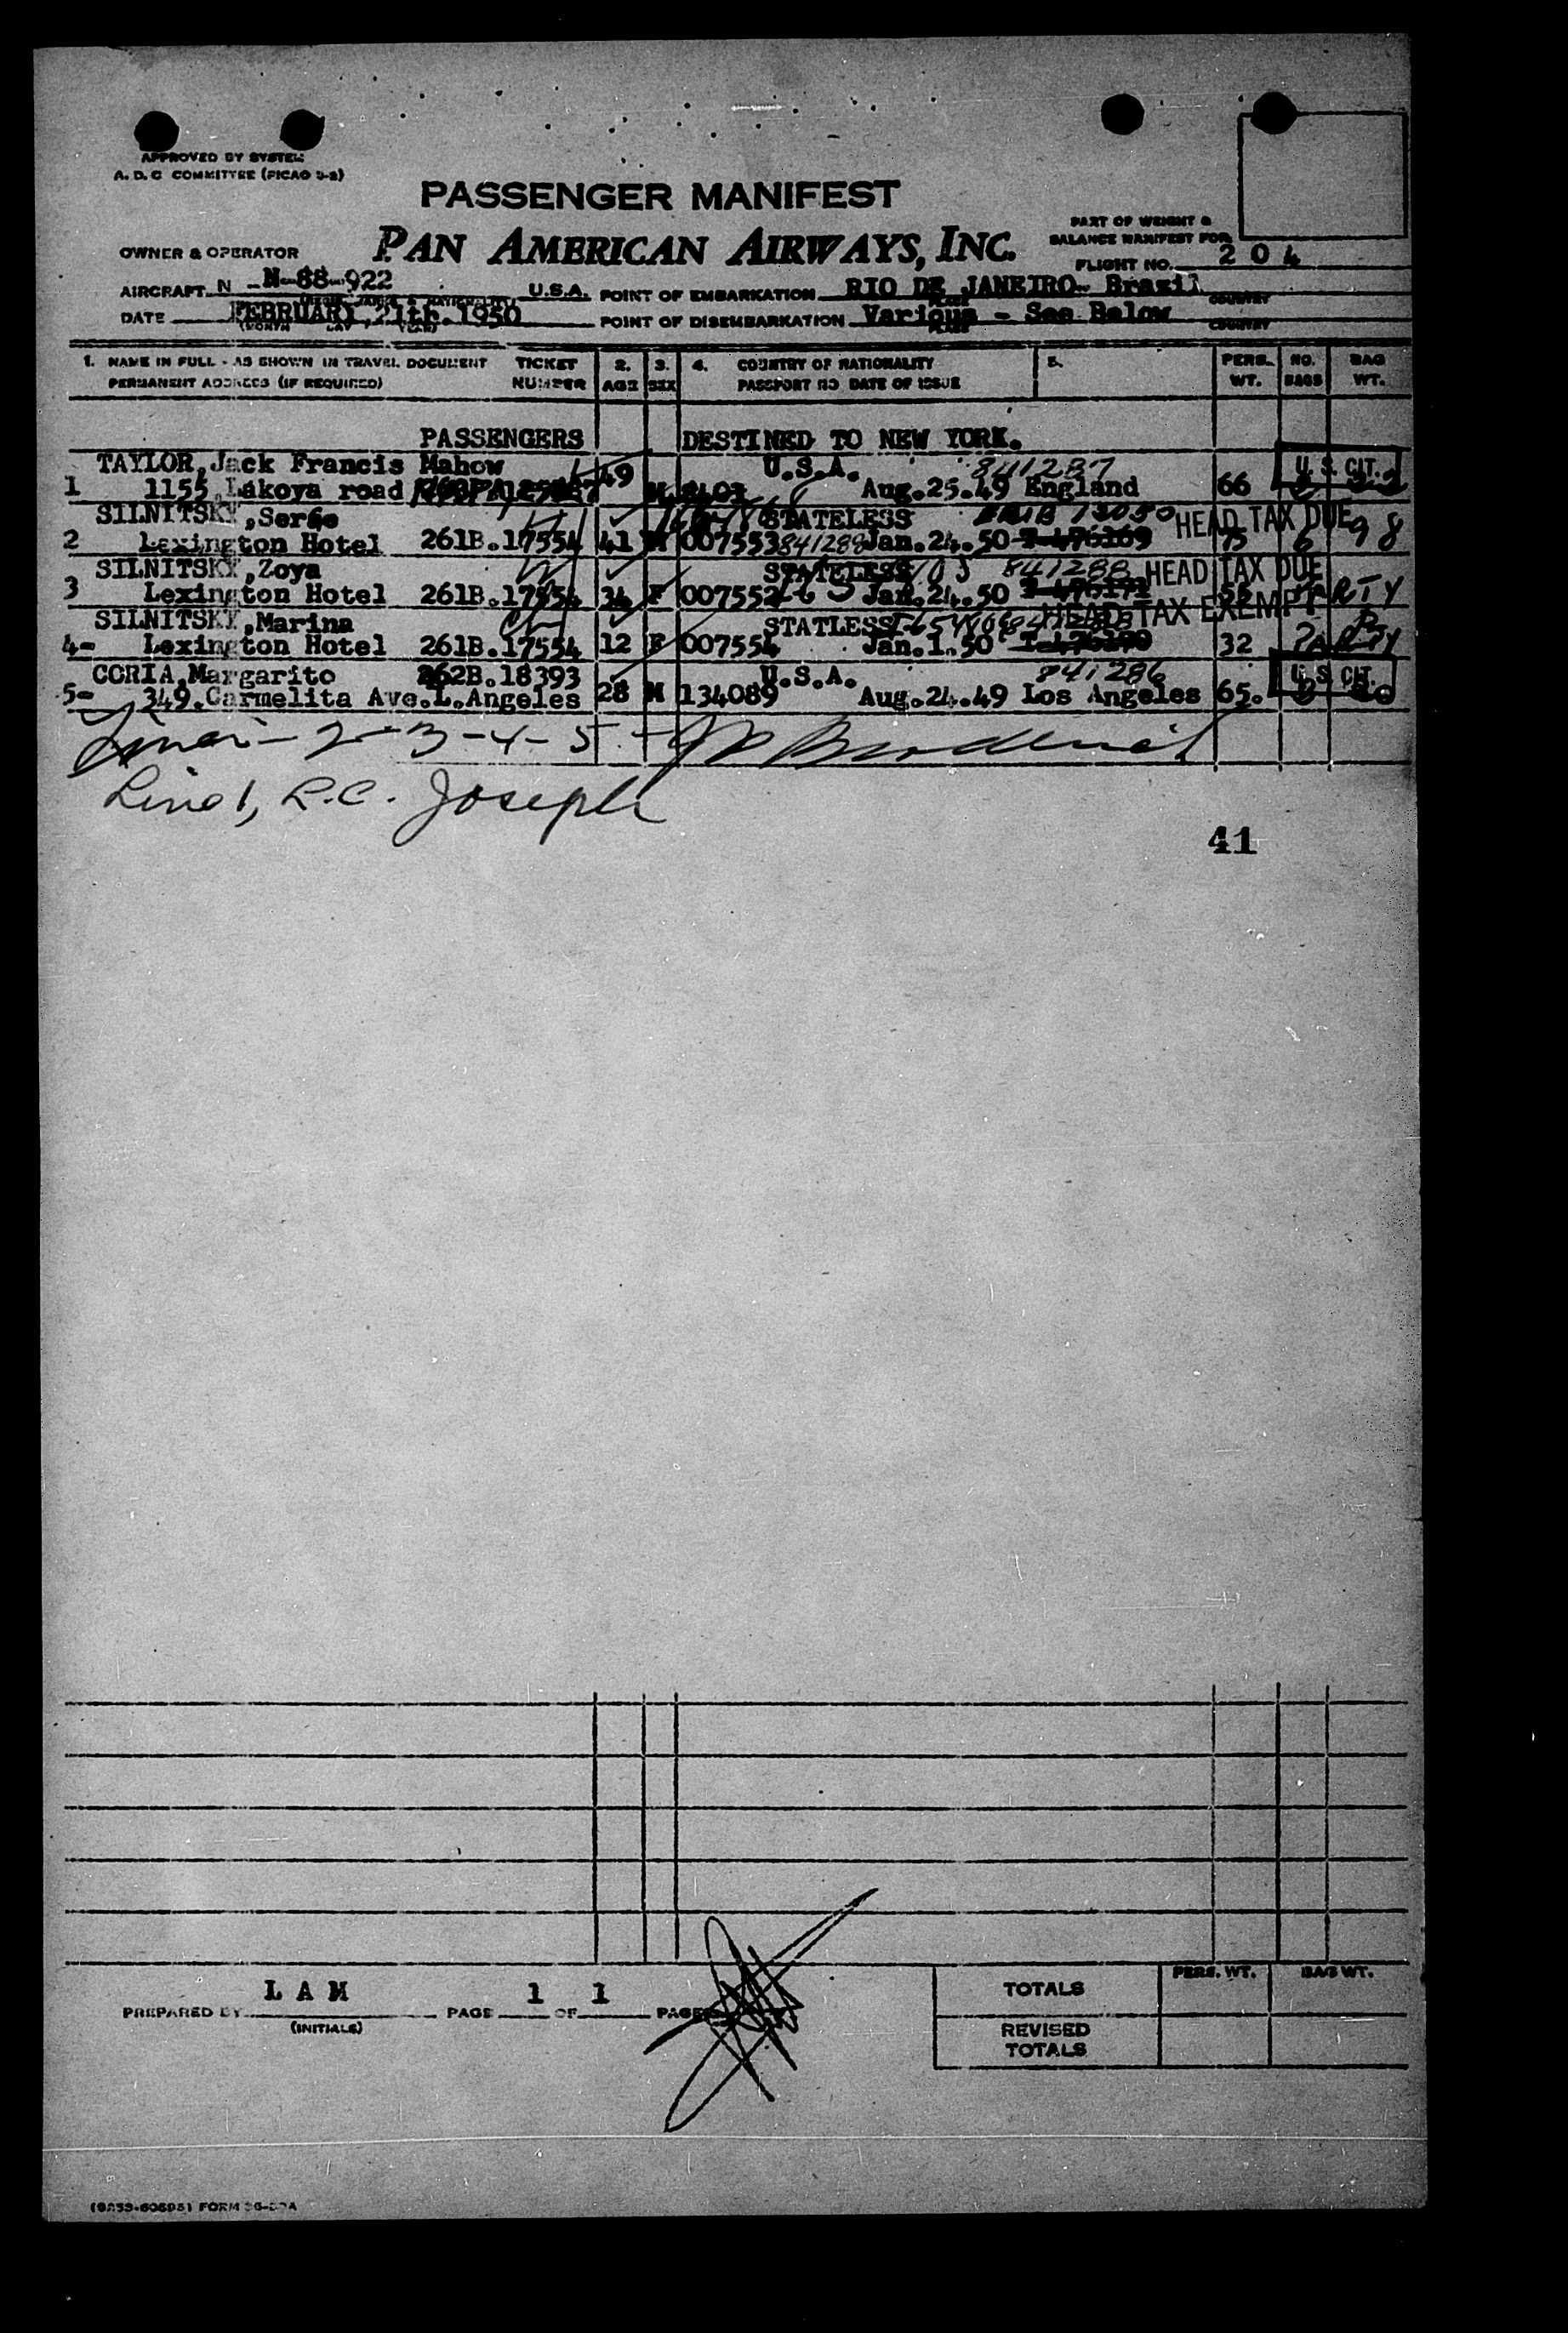 APPROVED BY SYSTEM
A. D. C COMMITTEE (PICAO
PASSENGER MANIFEST
PART OF WEIGHT &
BALANCE MANIFEST FOR
OWNER & OPERATOR PAN AMERICAN AIRWAYS, INC.
FLIGHT NO. 2 0 4
AIRCRAFT N N-88-922 U.S.A. POINT OF EMBARKATION RIO DE JANEIRO- Brazil
DATE FEBRUARY, 21th. 1950 POINT OF DISEMBARKATION Various - See Below
1. NAME IN FULL - AS SHOWN IN TRAVEL DOCUMENT TICKET 2. 3. 4. COUNTRY OF NATIONALITY 5. PERS. NO. BAG
PERMANENT ADDRESS (IF REQUIRED) NUMBER AGE SEX PASSPORT NO DATE OF ISSUE WT. BAGS WT.
PASSENGERS DESTINED TO NEW YORK.
TAYLOR, Jack Francis Mahow U.S.A. 841287 U. S. CIT.
1 1155 Lakoya road 49 M Aug.25.49 England 66
SILNITSKY, Serge STATELESS HEAD TAX DUE
2 Lexington Hotel 261B.17554 41 M 007553 841288 Jan.24.50 75 6 98
SILNITSKY, Zoya STATELESS 841288 HEAD TAX DUE
3 Lexington Hotel 261B.17554 34 F 007552 Jan.24.50
SILNITSKY, Marina STATLESS HEAD TAX EXEMPT
4- Lexington Hotel 261B.17554 12 F 007554 Jan.1.50 32 PARTY
CORIA, Margarito 262B.18393 U.S.A. 841286 U. S. CIT.
5- 349.Carmelita Ave.L.Angeles 28 M 134089 Aug.24.49 Los Angeles 65.
Lines - 2-3-4-5 -
Line 1, R.C. Joseph
41
L A M 1 1
PREPARED BY PAGE OF PAGES
(INITIALS)
PERS. WT. BAG WT.
TOTALS
REVISED
TOTALS